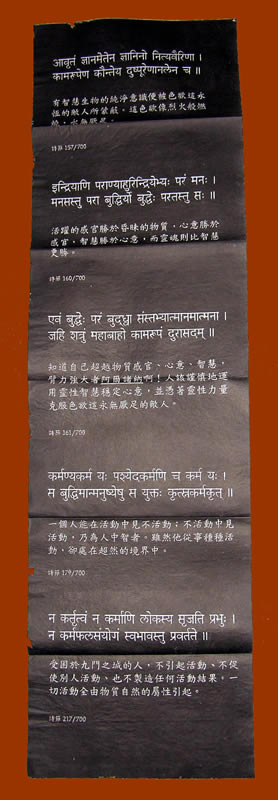 आवृतं ज्ञानमेतेन ज्ञानिनो नित्यवैरिणा ।
कामरूपेण कौन्तेय दुष्पूरेणानलेन च ॥
有智慧生物的純淨意識便被色欲這永
恆的敵人所蒙蔽。這色欲像烈火般燃
燒，永無厭足。
詩節 157/700
इन्द्रियाणि पराण्याहुरिन्द्रियेभ्यः परं मनः ।
मनसस्तु परा बुद्धिर्यो बुद्धेः परतस्तु सः ॥
活躍的感官勝於昏昧的物質，心意勝於
感官，智慧勝於心意，而靈魂則比智慧
更勝。
詩節 160/700
एवं बुद्धेः परं बुद्ध्वा संस्तभ्यात्मानमात्मना ।
जहि शत्रुं महाबाहो कामरूपं दुरासदम् ॥
知道自己超越物質感官、心意、智慧，
臂力強大者阿爾諸納啊！人該謹慎地運
用靈性智慧穩定心意，並憑著靈性力量
克服色欲這永無厭足的敵人。
詩節 161/700
कर्मण्यकर्म यः पश्येदकर्मणि च कर्म यः ।
स बुद्धिमान्मनुष्येषु स युक्तः कृत्स्नकर्मकृत् ॥
一個人能在活動中見不活動；不活動中見
活動，乃為人中智者。雖然他從事種種活
動，卻處在超然的境界中。
詩節 179/700
न कर्तृत्वं न कर्माणि लोकस्य सृजति प्रभुः ।
न कर्मफलसंयोगं स्वभावस्तु प्रवर्तते ॥
受困於九門之城的人，不引起活動、不促
使別人活動、也不製造任何活動結果。一
切活動全由物質自然的屬性引起。
詩節 217/700